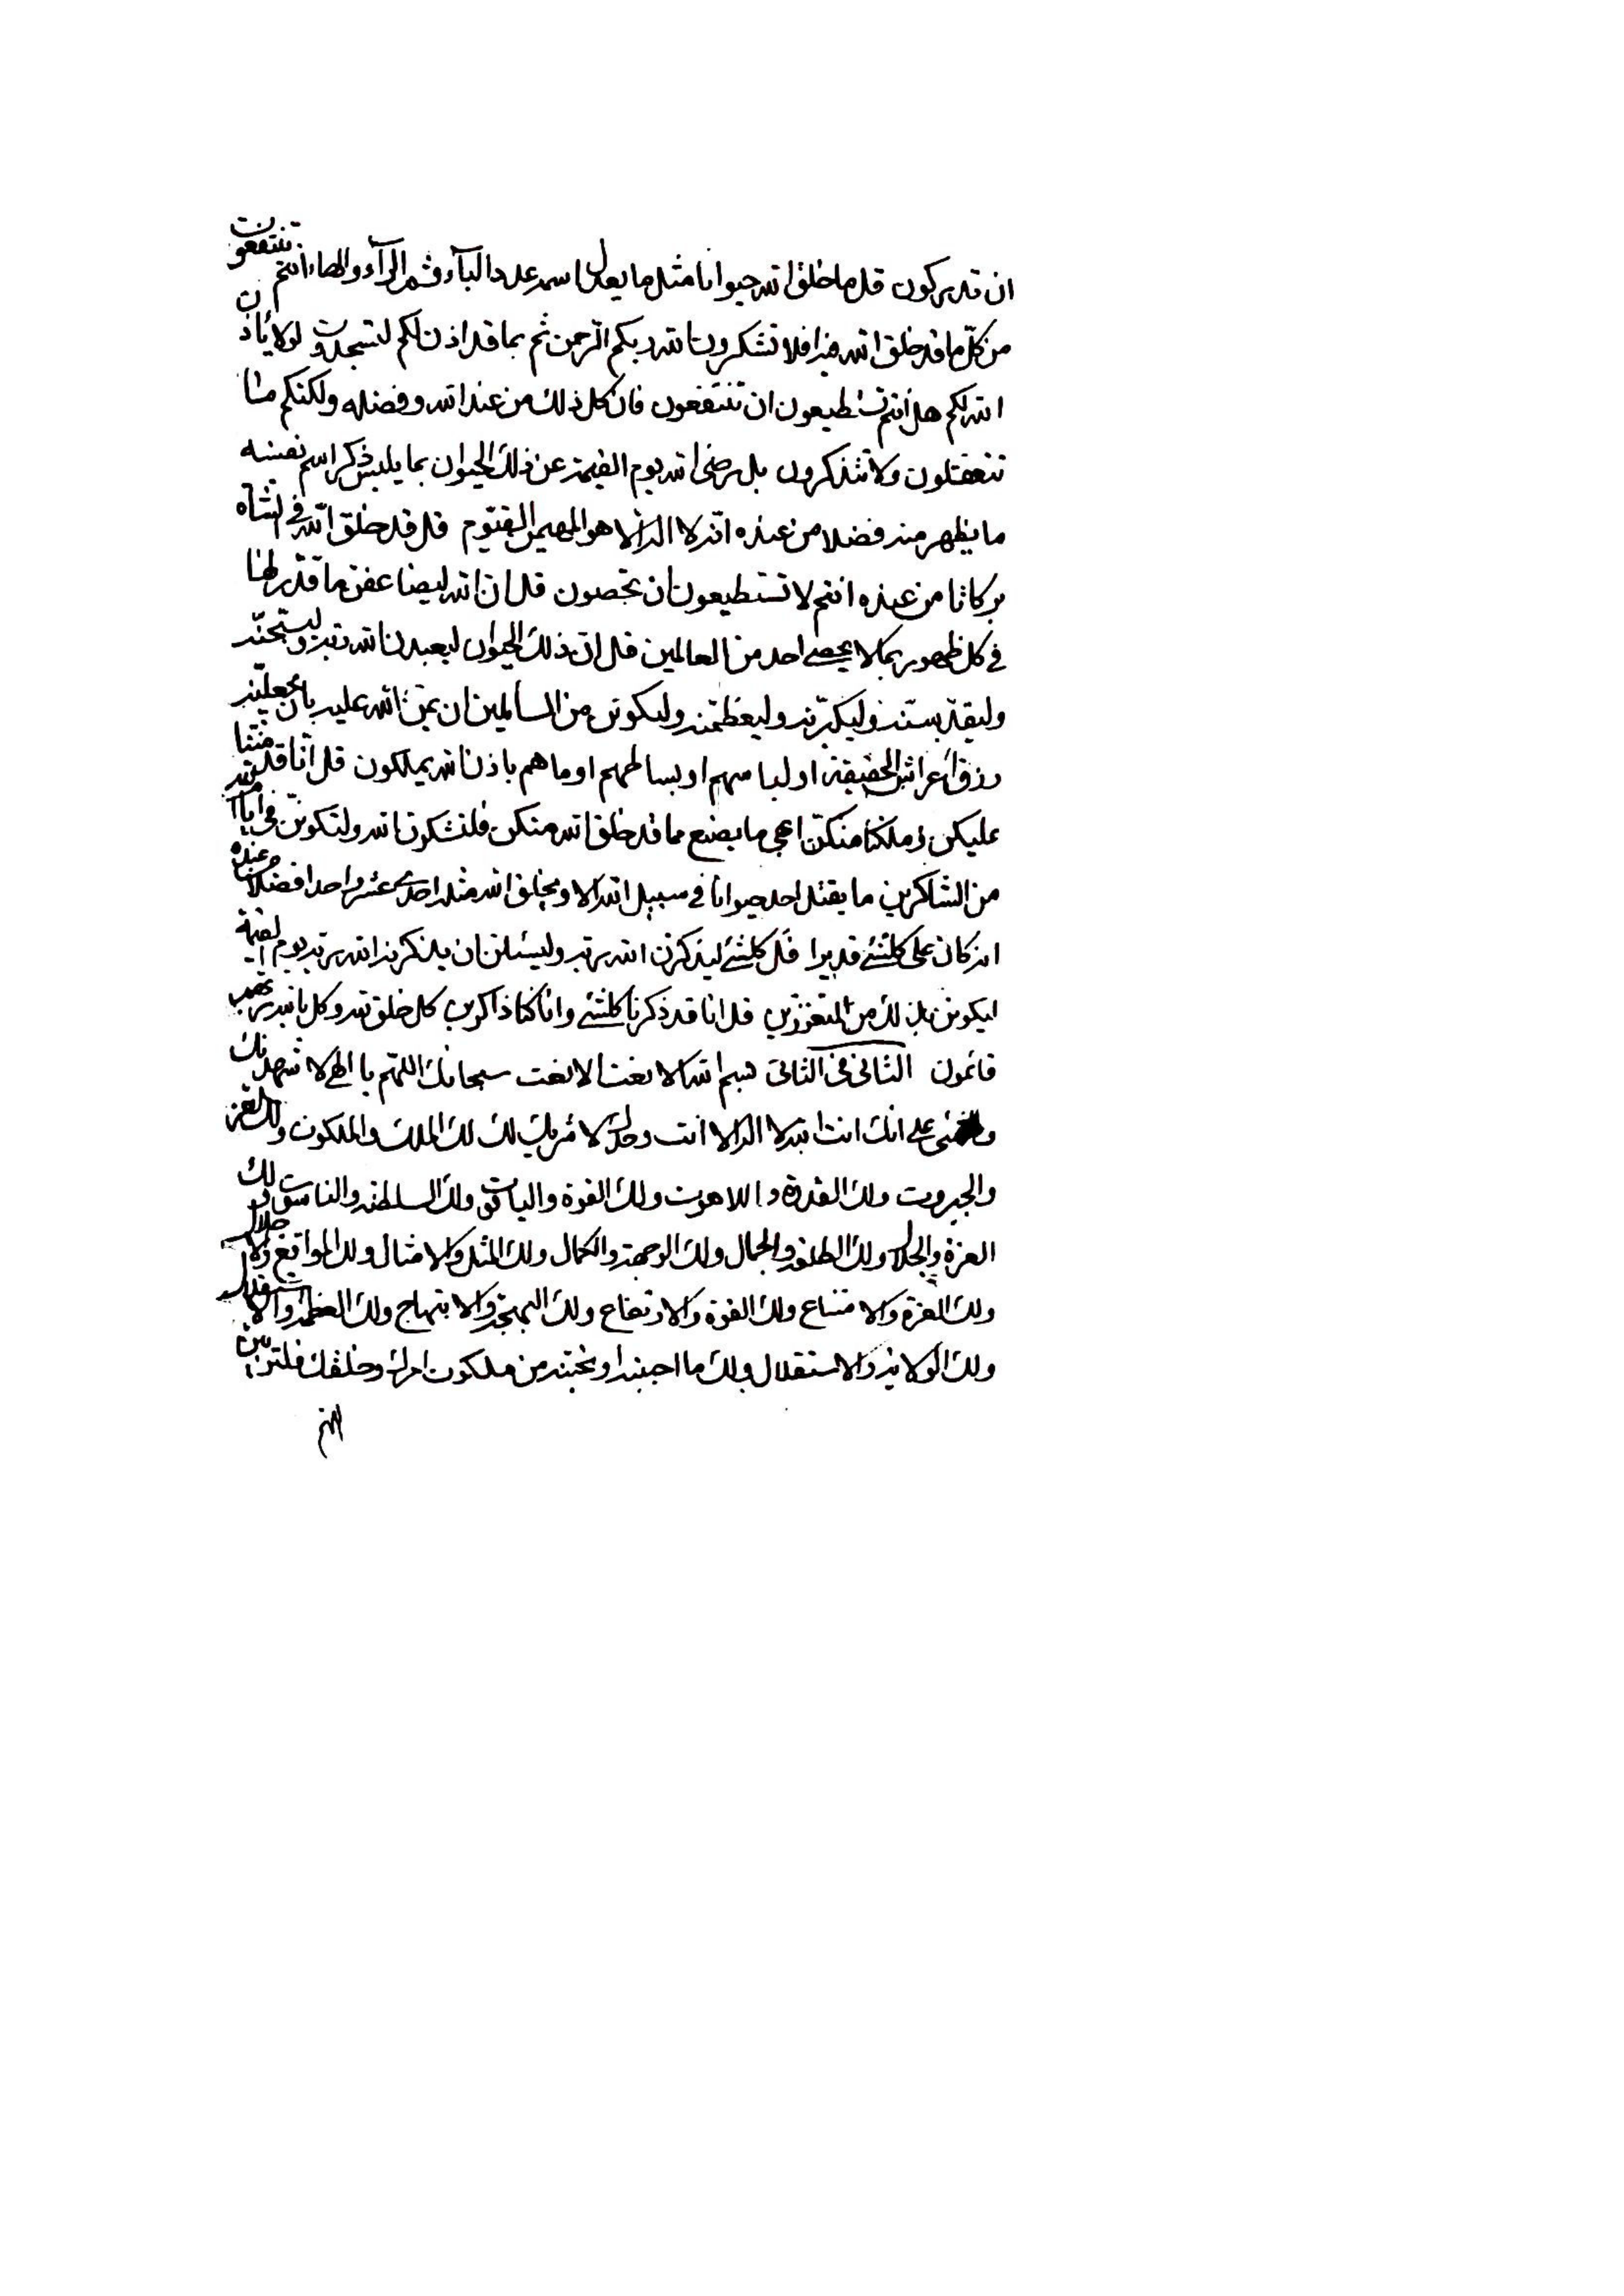 ان قد يركون قل ما خلق الله حيوانا مثل ما يعدل اسمه عدد الباء ثم الراء والهاء انتم تنتفعون
من كل ما قد خلق الله فيه افلا تشكرون الله ربكم الرحمن ثم بما قد اذن لكم لتسجدون لولا يأذن
الله لكم هل انتم تستطيعون ان تنتفعون فان كل ذلك من عند الله وفضله ولكنكم مثنا
تتعقلون ولا تتذكرون بل يرضى الله يوم القيمة عن ذلك الحيوان بما يلبس ذكر اسم نفسه
ما يظهر منه فضلا من عنده انه لا اله الا هو المهيمن القيوم قل قد خلق الله في الشاة
بركاتا من عنده انتم لا تستطيعون ان تحصون قل ان الله ليضاعفن ما قدر لها
في كل ظهور بما لا يحصى احد من العالمين قل ان ذلك الحيوان ليعبدن الله ربه وليسبحنه
وليقدسنه وليكبرنه وليعظمنه وليكونن من السائلين ان يمن الله عليه بان يجعلنه
رزق اعراش الحقيقة او لباسهم او بساطهم او ما هم باذن الله يملكون قل انا قد مننا
عليكن وملكنا منكن ما يضع مما قد خلق الله منكن فلتشكرن الله ولتكونن في ايام الله
من الشاكرين ما يقتل احد حيوانا في سبيل الله الا ويخلق الله مثله احدى عشر واحدا فضلا من عنده
انه كان على كلشئ قديرا قل كلشئ ليذكرن الله ربه وليسئلن ان يذكرنه الله ربه يوم القيمة
ليكونن بذلك من المتعززين قل انا قد ذكرنا كلشئ وانا كنا ذاكرين كل خلق لله وكل بامر ربهم
قائمون الثاني في الثاني بسم الله الانعت الانعت سبحانك اللهم يا الهي لاشهدنك
وكلشئ على انك انت الله لا اله الا انت وحدك لا شريك لك لك الملك والملكوت ولك العز
والجبروت ولك القدرة واللاهوت ولك القوة والياقوت ولك السلطنة والناسوت ولك
العزة والجلال ولك الطلعة والجمال ولك الوجهة والكمال ولك المثل والامثال ولك المواقع والاجلال
ولك العزة والامتناع ولك القوة والارتفاع ولك البهجة والابتهاج ولك العظمة والاستقلال
ولك الولاية والاستقلال ولك ما احببته او تحبنه من ملكوت امرك وخلقك فلتربين